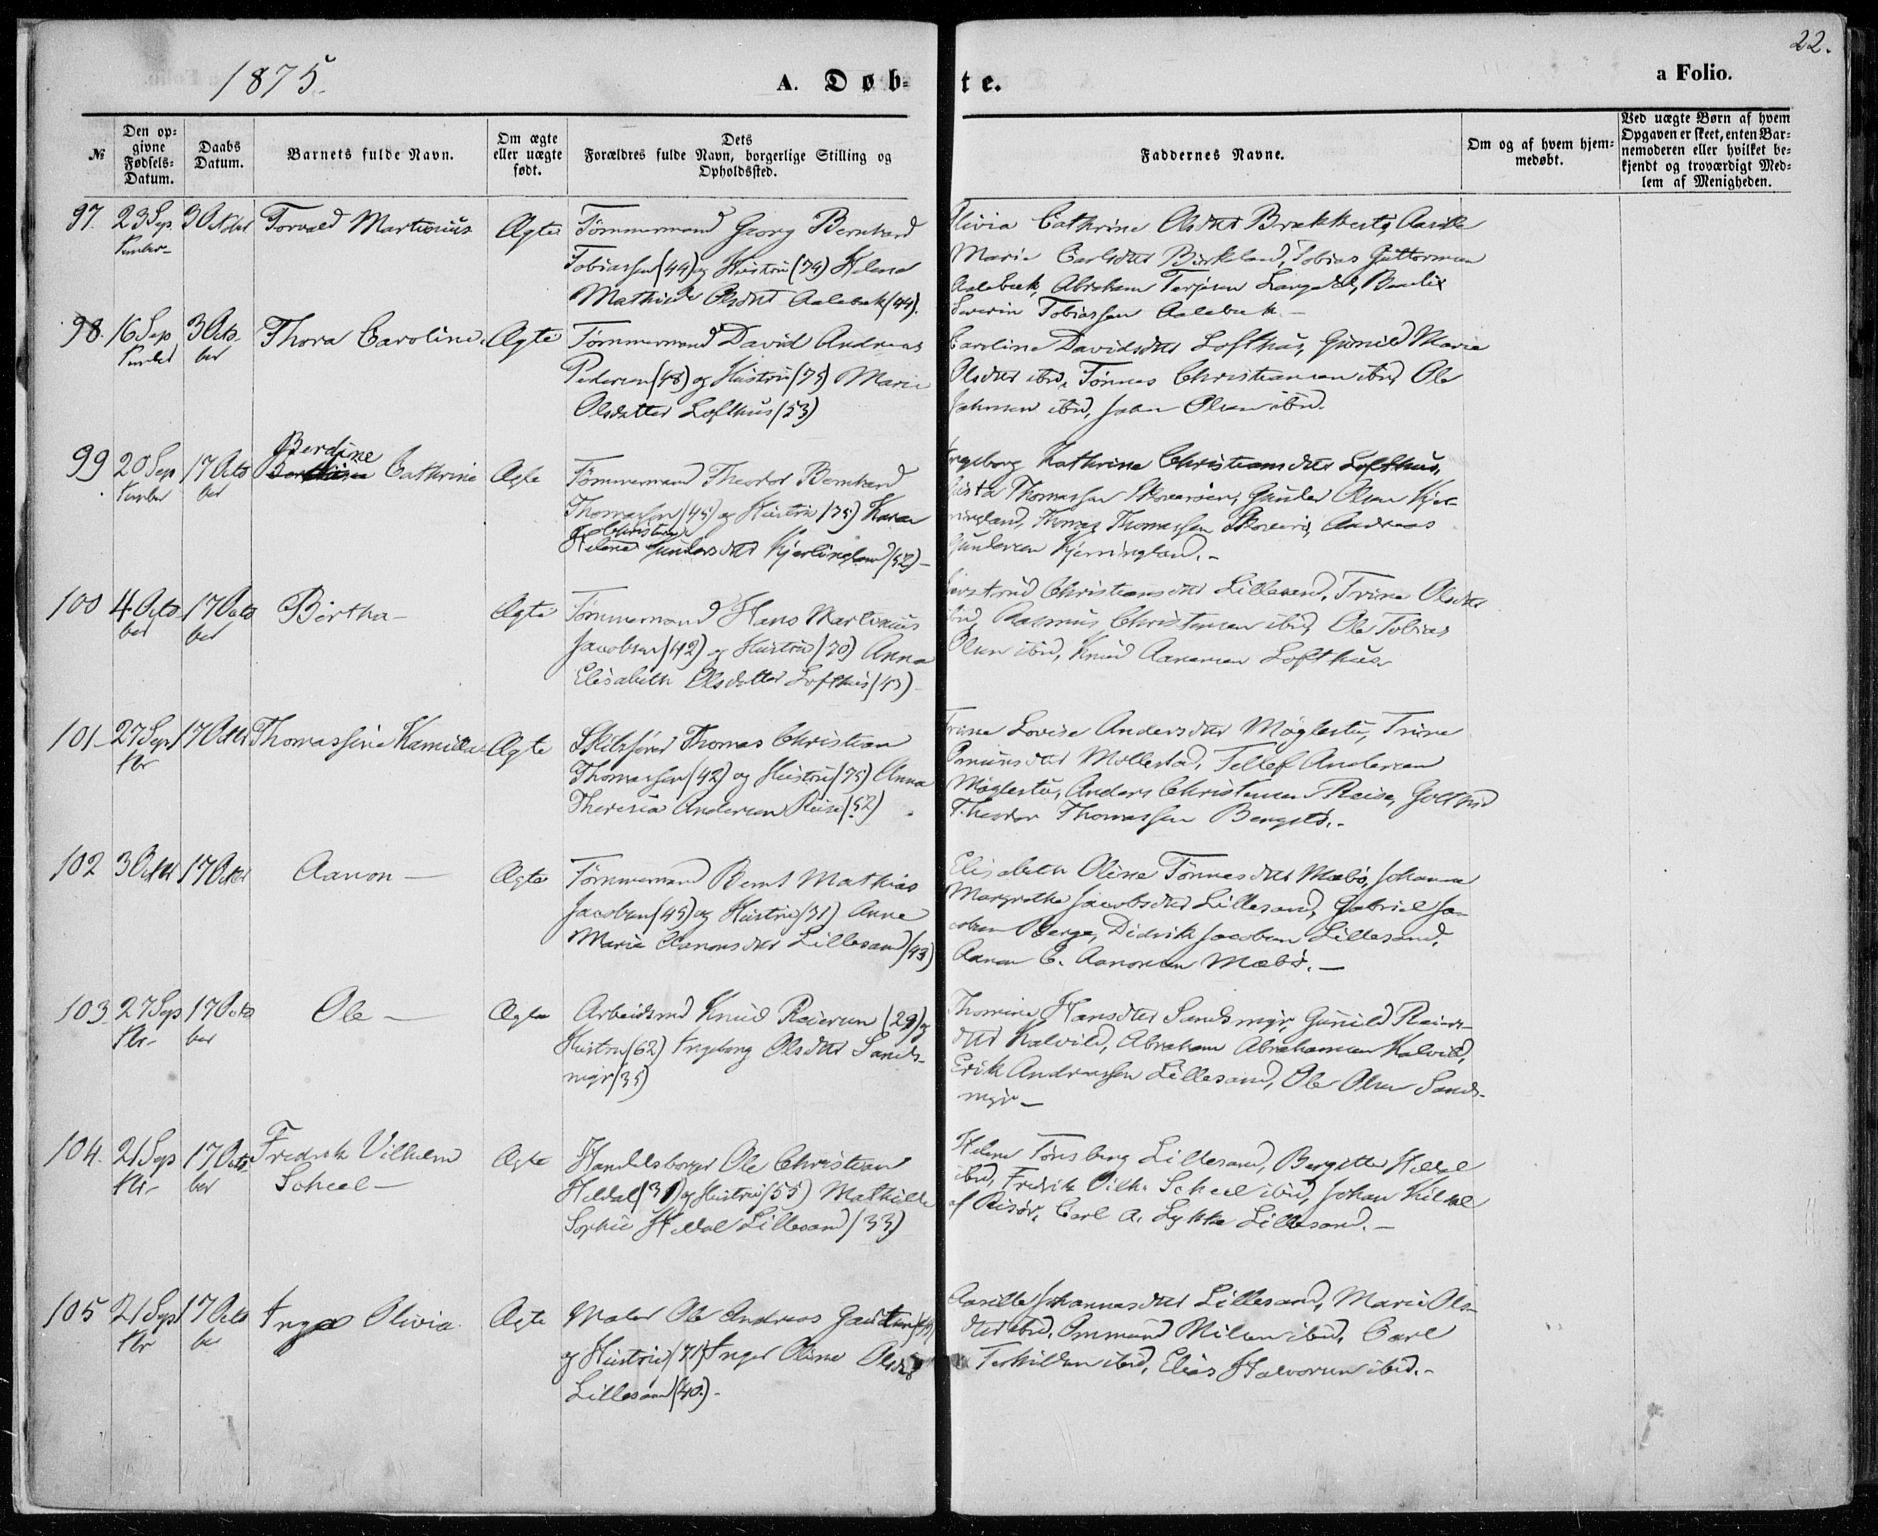 22.
1875.
A. Døb-
te.
a Folio.
№
Den op-
givne
Fødsels-
Datum.
Daabs
Datum.
Barnets fulde Navn.
Om ægte
eller uægte
født.
Dets
Forældres fulde Navn, borgerlige Stilling og
Opholdssted.
Faddernes Navne.
Om og af hvem hjem-
medøbt.
Ved uægte Børn af hvem
Opgaven er skeet, enten Bar-
nemoderen eller hvilket be-
kjendt og troværdigt Med-
lem af Menigheden.
97. 23 Sep 3 October Torvald Martinius Ægte Tømmermand Georg Bernhard
tember
Tobiassen (44) og Hustru (74) Helene
Mathilde Olsdtr Aalebæk (44).
Olivia Cathrine Olsdtr Brækkestø,
Marie Carlsdtr Birkeland, Tobias Guttormsen
Aalebæk, Abraham Terjesen
Severin Tobiassen Aalebæk.-
98. 16 Sep 3 Octo Thora Caroline. Ægte Tømmermand David Andreas
tember ber
Pedersen (48) og Hustru (75) Marie
Olsdatter Lofthus (53)
Caroline Davidsdtr Lofthus, Gunild Marie
Olsdtr ibid, Tønnes Christiansen ibid Ole
Johnsen ibid, John Olsen ibid.
99 20 Sep 17 Octo Berdine Cathrine Ægte Tømmermand Theodor Bernhard
tember ber
Thomassen (45) og Hustru (75) Karen
Christine
Helene Gundersdtr Kjerlingland (52) -
Ingeborg Kathrine Christiansdtr Lofthus,
Thomassen Skovrøen, Gunder Olsen Kjer-
ringland, Thomas Thomassen Andreas
Gundersen Kjerringland.-
100 4 Octo 17 Octo Birtha - Ægte Tømmermand Hans Martinius
ber ber
Jacobsen (42) og Hustru (70) Anna
Elisabeth Olsdatter Lofthus (43) -
Christiansdtr Lillesand, Trine Olsdtr
ibid, Rasmus Christensen ibid, Ole Tobias
Olsen ibid, Knud Aanonsen Lofthus
101- 27 Sept 17 Octbr Thomassine Kamilla Ægte Skibsfører Thomas Christian
br
Thomassen (42) og Hustru (75) Anna
Theresia Andersen Reise (52)
Trine Lovise Andersdtr Møglestu, Trine
Omunsdtr Mollestad, Tellef Andersen
Møglestu, Anders Christensen Reise, Gotfred
Theodor Thomassen
102 3 Octbr 17 Octbr Aanon - Ægte Tømmermand Bernt Mathias
Jacobsen (45) og Hustru (31) Anne
Marie Aanonsdtr Lillesand (43)
Elisabeth Oline Tønnesdtr Mæbø, Johanna
Margrethe Jacobsdtr Lillesand, Gabriel Ja-
cobsen Berge, Didrik Jacobsen Lillesand,
Aanon C. Aanonsen Mæbø. -
103. 27 Sep 17 Octo Ole - Ægte Arbeidsmd Knud Reiersen (29) og
tbr- ber
Hustru (62) Ingeborg Olsdtr Sands-
myr (35)
Thomine Hansdtr Sandsmyr, Gunild Reiers-
dtr Kalvild, Abraham Abrahamsen Kalvild,
Erik Andreassen Lillesand, Ole Olsen Sands-
myr -
104. 21 Sep 17 Octo Fredrik Vilhelm Ægte Handelsborger Ole Christian
tbr- ber Scheel -
Heldal (31) og Hustru (55) Mathilde
Sophie Heldal Lillesand (33)
Helene Tønsberg Lillesand, Bergitte Heldal
ibid, Fredrik Vilh. Scheel ibid, Johan
af Risør, Carl A. Lykke Lillesand. -
105 21 Sept 17 Octo Inga Olivia Ægte Maler Ole Andreas
br ber
og Hustru (71) Inger Oline Olsdtr
Lillesand (40.) -
Aasille Johannesdtr Lillesand, Marie Ols-
dtr ibid, Ommund Nilsen ibid, Carl
Terkildsen ibid, Elias Halvorsen ibid. -